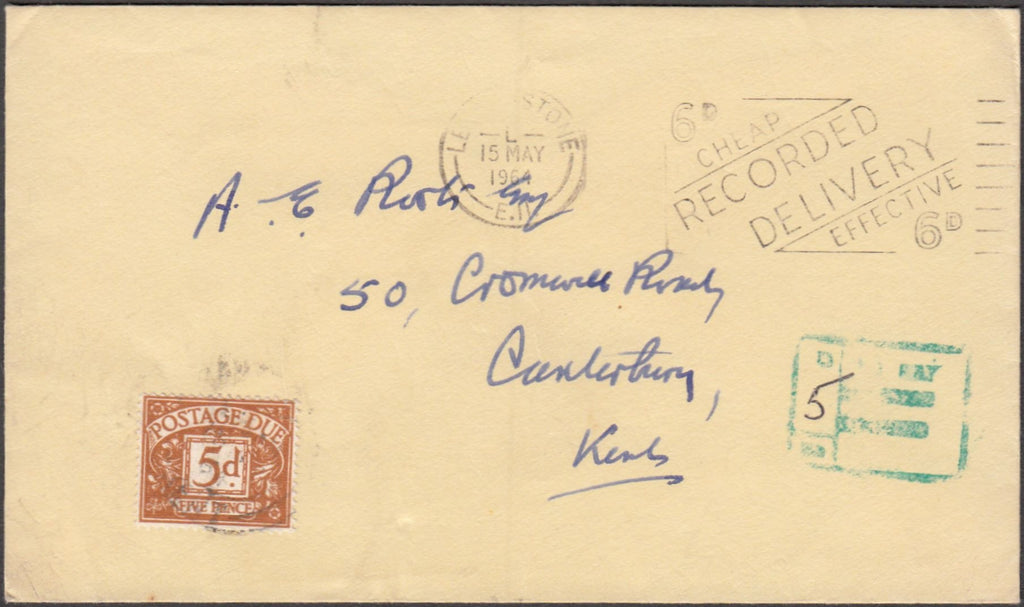 STONE
L
15 MAY
1964
E.11
6D
CHEAP
RECORDED
DELIVERY
EFFECTIVE
6D
A. E. Roots Esq
50, Cromwell Road,
Canterbury,
Kent
D
5
POSTAGE DUE
5d
FIVE PENCE